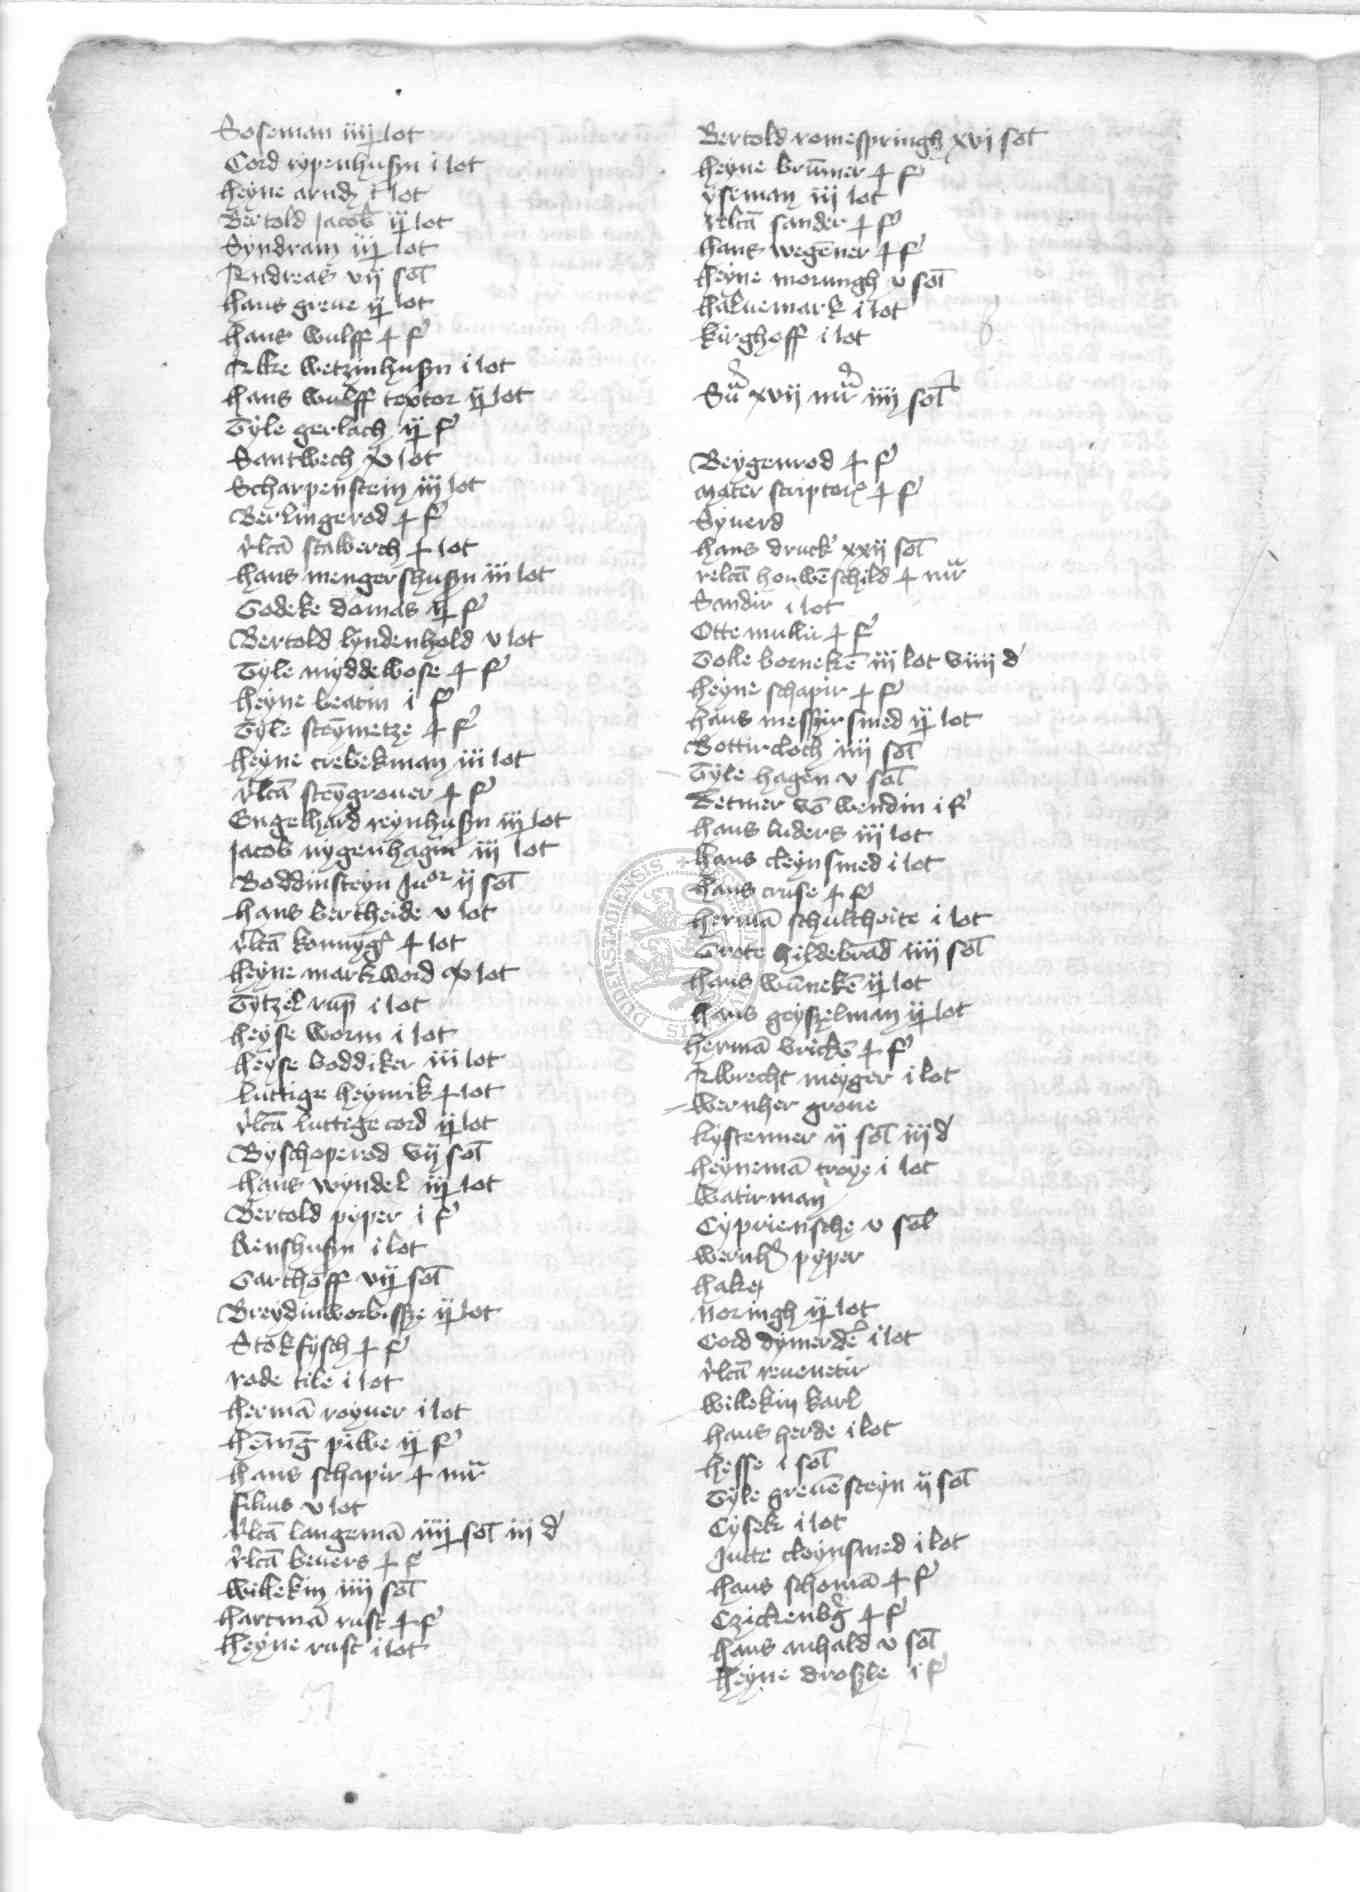 Soseman iiij lot
Cord rypenhusen i lot
heyne arndes i lot
Bertold Jacob ij lot
Syndram iij lot
Andreas vij sol
hans greue ij lot
hans wulff f
wetzinhusen i lot
hans wulff textor ij lot
Tyle gerlach ij f
Santwech lot
Scharpenstein iij lot
Berlingerod f
rlcta stalberch lot
hans mengershusen iii lot
Godeke domas ij f
Bertold lyndenhold v lot
Tyle myddelbose f
heyne beatin i f
Tyle steynmetze f
heyne crebekman iii lot
rlcta steygrover f
Engelhard reynhusen iij lot
Jacob nygenhagin iii lot
Boddinsteyn Juor ij sol
hans bertheide v lot
rlcta lot
heyne markword lot
Tytzel rusp i lot
heyse worm i lot
heyse boddiker iii lot
luttige heynrik lot
rlcta luttige cord ij lot
Byschoperod vij sol
hans wyndel iij lot
Bertold pyper i f
Renshusen i lot
Garthoff vij sol
Breydinworbissze ij lot
Stokfysch f
rode tile i lot
hermā royuer i lot
hēnīg pilwe ij f
hans schapir mr
filius v lot
rlcta langemā iiij sol iii d
rlcta beuers f
Willekin iiij sol
hartmā rust f
heyne rust i lot
Bertold romespringh xvi sol
heyne brūner f
yseman iii lot
relcā sander f
hans wegener f
heyne morungh v sol
haluemark i lot
kirghoff i lot
Sū xvij mr iiij sol
Beygenrod f
mater scriptor f
Syuerd
hans druck xxij sol
relcā houwēschild mr
Sandir i lot
Otte mullir f
Tolle bornekē iij lot viiij d
heyne schapir f
hans messzirsmed ij lot
Bottirloch iiij sol
Tyle hagen v sol
Detmer vō wendin i f
hans luders iij lot
hans cleynsmed i lot
hans cruse f
hermā schultheite i lot
Grote hildebrād iiij sol
hans wūnekē ij lot
hans geyszelman ij lot
hermā brickē f
Albrecht meyger i lot
Wernher grone
kystenner ij sol iij d
heynemā troye i lot
Watirman
Cypriensche v sol
Wernh pyper
hake
Noringh ij lot
Cord dymerdē i lot
rlcta reuenetir
Willekin karl
hans herde i lot
hesse i sol
Tyle greuēsteyn ij sol
Cysek i lot
Jutte cleynsmed i lot
hans schomā f
Czickenbg f
hans anhald v sol
heyne droszle i f
42